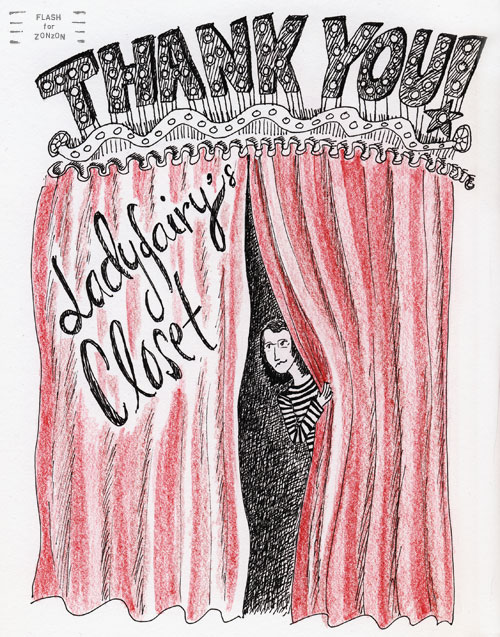 FLASH
for
ZONZON
THANK YOU!
Ladyfairy's
Closet